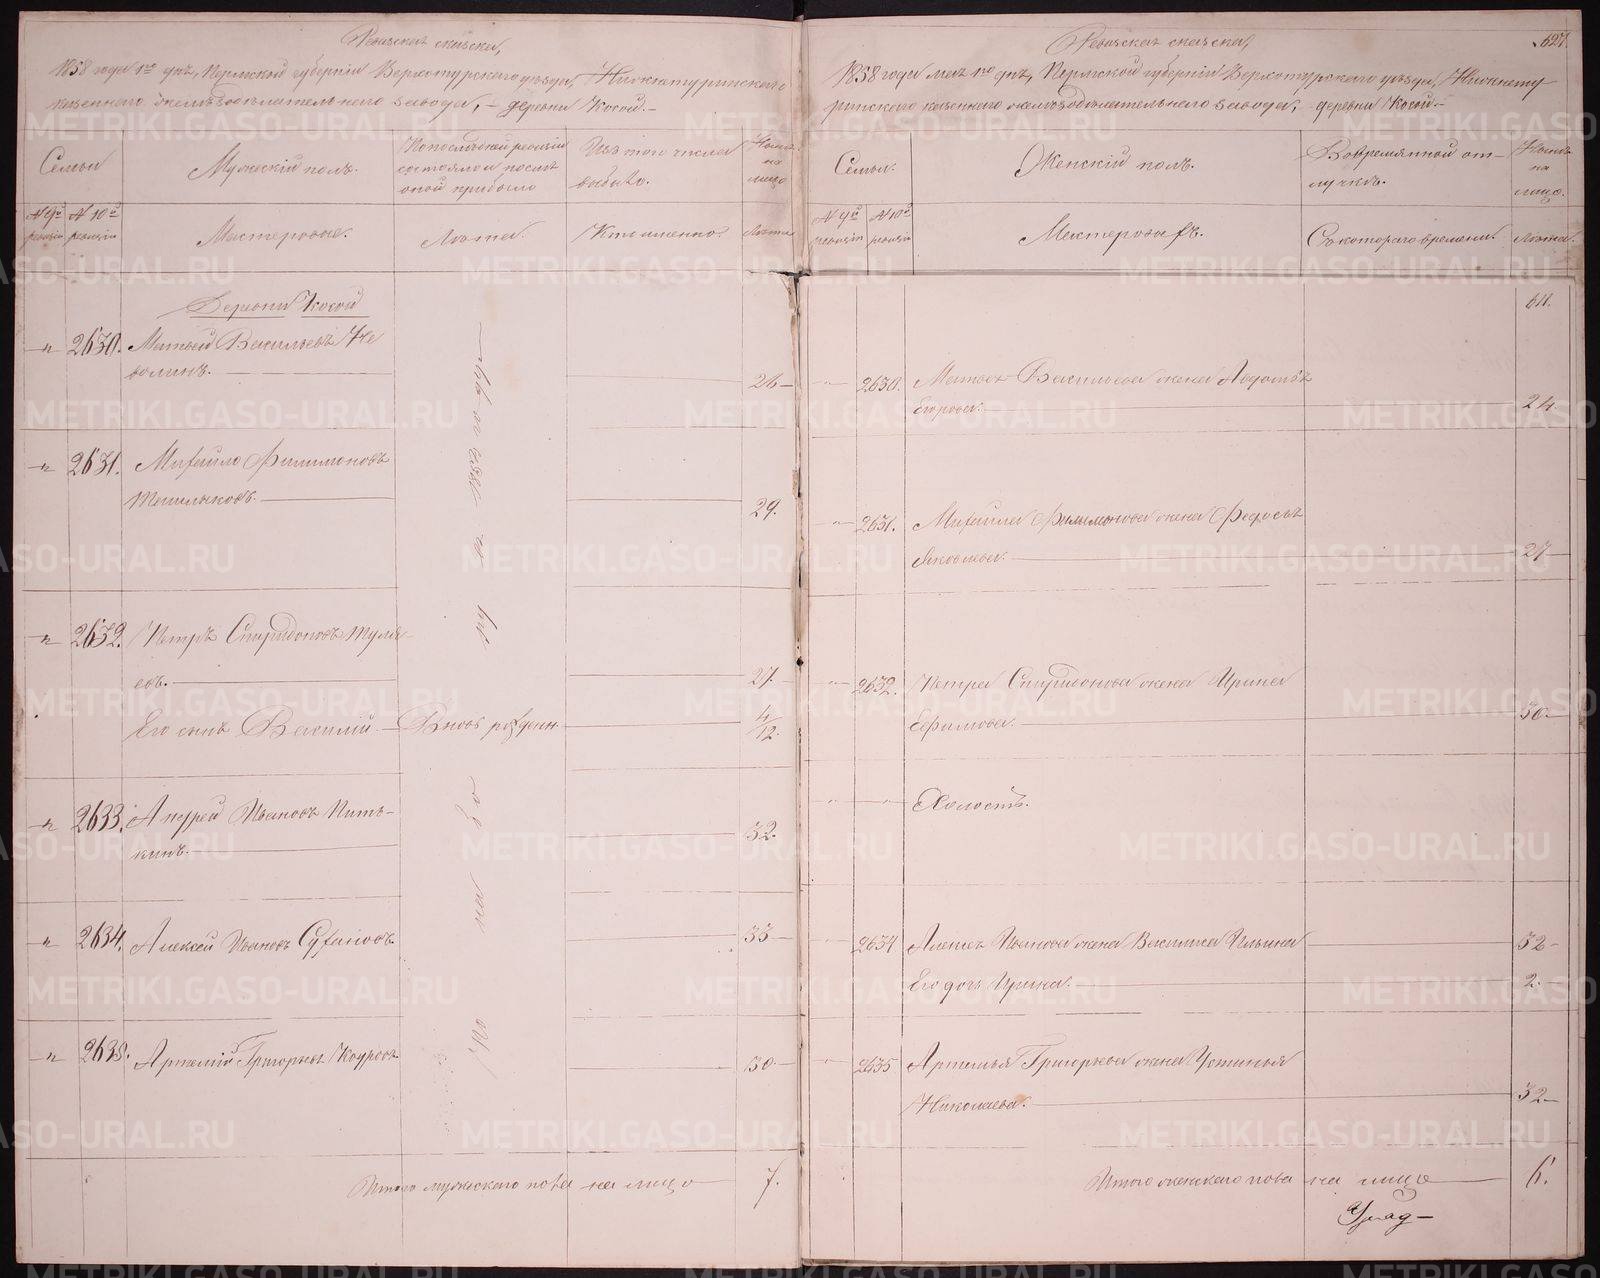 Ревизская сказка,
1858 года 1го дня, Пермской губернии Верхотурского уѣзда, Нижнетуринского
казеннаго желѣзодѣлательнаго завода, – деревни Косой. –
Семьи
Мужескій полъ.
По последней ревизіи
состояло и послѣ
оной прибыло
Изъ того числа
выбыло.
Нынѣ
на
лицо
№ 9й
ревизіи
№ 10й
ревизіи
Мастеровые.
Лѣта.
Кто именно.
Лѣта
Деревни Косой
" 2630. Матвей Васильевъ Не
волинъ. 26
" 2631. Михайло Филимоновъ
29.
" 2632. Петръ Спиридоновъ Туля-
евъ. 27.
Его сынъ Василій – Вновь рожден. 4/12.
" 2633. Андрей Ивановъ Пить-
кинъ. 32.
" 2634. Алексей Ивановъ 33
" 2635. Артемій Григорьевъ Коуровъ 30.
Итого мужескаго пола на лицо 7.
Ревизская сказка,
627.
1858 года мая 1го дня, Пермской губерніи Верхотурского уѣзда, Нижнету
ринского казеннаго желѣзодѣлательнаго завода, деревни Косой. –
Семьи.
Женскій полъ.
Во временной от-
лучкѣ.
Нынѣ
на
лицо.
№ 9й
ревизіи
№ 10й
ревизіи
Мастероваѣ.
Съ котораго времени.
Лѣта.
" 2630. Матвея Васильева жена
Егорова. 24
" 2631. Михайла Филимонова жена Федосья
Яковлева. 27
" 2632. Петра Спиридонова жена Ирина
Ефимова. 30.
" " Холостъ.
" 2634 Алексея Иванова жена Василиса Ильина 32
Его дочь Ирина. 2.
" 2635 Артемья Григорьева жена Устинья
Николаева. 32
Итого женскаго пола на лицо 6.
METRIKI.GASO-URAL.RU